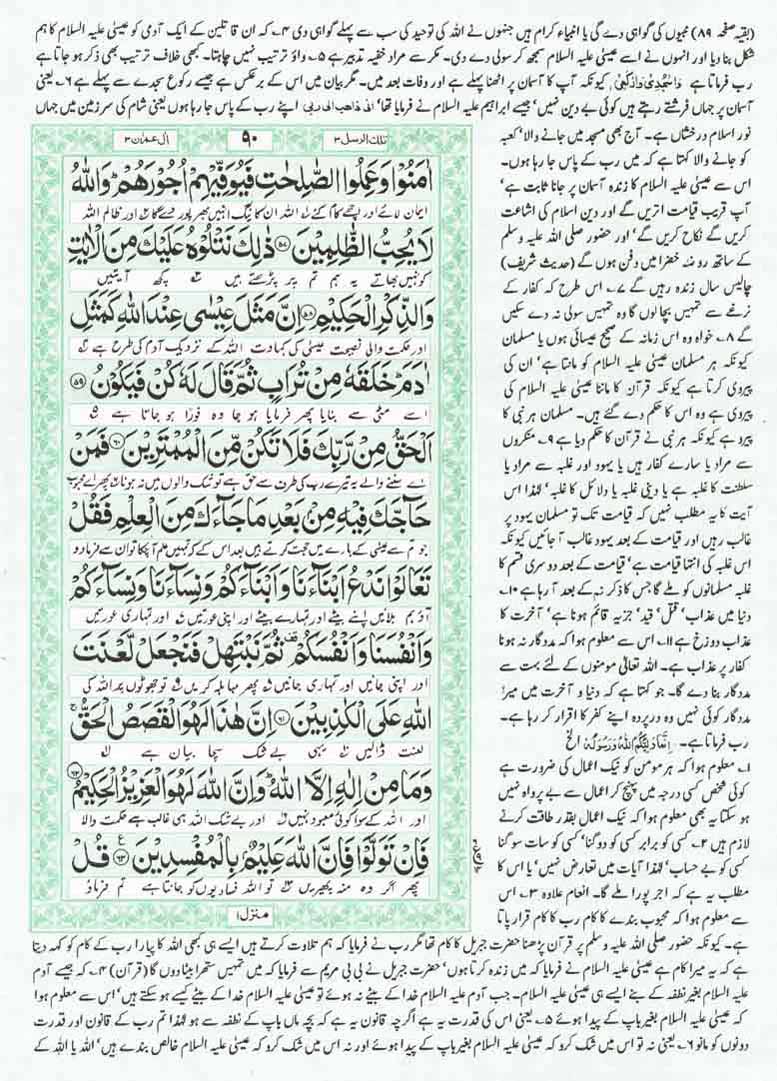 (بقیہ صفحہ ۸۹) نبیوں کی گواہی دے گی یا انبیاء کرام ہیں جنہوں نے اللہ کی توحید کی سب سے پہلے گواہی دی ۴۔ کہ ان قاتلین کے ایک آدمی کو عیسیٰ علیہ السلام کا ہم
شکل بنا دیا اور انہوں نے اسے عیسیٰ علیہ السلام سمجھ کر سولی دے دی۔ مکر سے مراد خفیہ تدبیر ہے ۵۔ واؤ ترتیب نہیں چاہتا۔ کبھی خلاف ترتیب بھی ذکر ہو جاتا ہے
رب فرماتا ہے وَاسْجُدِیْ وَارْكَعِیْ کیونکہ آپ کا آسمان پر اٹھنا پہلے ہے اور وفات بعد میں۔ مگر بیان میں اس کے برعکس ہے جیسے رکوع سجدے سے پہلے ہے ۶۔ یعنی
آسمان پر جہاں فرشتے رہتے ہیں کوئی بے دین نہیں' جیسے ابراہیم علیہ السلام نے فرمایا تھا' انی ذاهب الی ربی اپنے رب کے پاس جا رہا ہوں یعنی شام کی سرزمین میں جہاں
نور اسلام درخشاں ہے۔ آج بھی مسجد میں جانے والا' کعبہ
کو جانے والا کہتا ہے کہ میں رب کے پاس جا رہا ہوں۔
اس سے عیسیٰ علیہ السلام کا زندہ آسمان پر جانا ثابت ہے'
آپ قریب قیامت اتریں گے اور دین اسلام کی اشاعت
کریں گے نکاح کریں گے' اور حضور صلی اللہ علیہ وسلم
کے ساتھ روضہ خضرا میں دفن ہوں گے (حدیث شریف)
چالیس سال زندہ رہیں گے ۷۔ اس طرح کہ کفار کے
نرغے سے تمہیں بچالوں گا وہ تمہیں سولی نہ دے سکیں
گے ۸۔ خواہ وہ اس زمانہ کے صحیح عیسائی ہوں یا مسلمان
کیونکہ ہر مسلمان عیسیٰ علیہ السلام کو مانتا ہے' ان کی
پیروی کرتا ہے کیونکہ قرآن کا ماننا عیسیٰ علیہ السلام کی
پیروی ہے وہ اس کا حکم دے گئے ہیں۔ مسلمان ہر نبی کا
پیرو ہے کیونکہ ہر نبی نے قرآن کا حکم دیا ہے ۹۔ منکروں
سے مراد یا سارے کفار ہیں یا یہود اور غلبہ سے مراد یا
سلطنت کا غلبہ ہے یا دینی غلبہ یا دلائل کا غلبہ' لہٰذا اس
آیت کا یہ مطلب نہیں کہ قیامت تک تو مسلمان یہود پر
غالب رہیں اور قیامت کے بعد یہود غالب آ جائیں کیونکہ
اس غلبہ کی انتہا قیامت ہے' قیامت کے بعد دوسری قسم کا
غلبہ مسلمانوں کو ملے گا جس کا ذکر نہ کے بعد آ رہا ہے ۱۰۔
دنیا میں عذاب' قتل' قید' جزیہ قائم ہونا ہے' آخرت کا
عذاب دوزخ ہے ۱۱۔ اس سے معلوم ہوا کہ مددگار نہ ہونا
کفار پر عذاب ہے۔ اللہ تعالیٰ مومنوں کے لئے بہت سے
مددگار بنا دے گا۔ جو کہتا ہے کہ دنیا و آخرت میں میرا
مددگار کوئی نہیں وہ درپردہ اپنے کفر کا اقرار کر رہا ہے۔
رب فرماتا ہے۔ اِنَّمَا وَلِيُّكُمُ اللّٰهُ وَرَسُوْلُهٗ الخ
۱۔ معلوم ہوا کہ ہر مومن کو نیک اعمال کی ضرورت ہے
کوئی شخص کسی درجہ میں پہنچ کر اعمال سے بے پرواہ نہیں
ہو سکتا یہ بھی معلوم ہوا کہ نیک اعمال بقدر طاقت کرنے
لازم ہیں ۲۔ کسی کو برابر کسی کو دو گنا' کسی کو سات سو گنا
کسی کو بے حساب' لہٰذا آیات میں تعارض نہیں' یا اس کا
مطلب یہ ہے کہ اجر پورا ملے گا۔ انعام علاوہ ۳۔ اس
سے معلوم ہوا کہ محبوب بندے کا کام رب کا کام قرار پاتا
تلك الرسل ۳
۹۰
اٰل عمرٰن ۳
اٰمَنُوْا وَعَمِلُوا الصّٰلِحٰتِ فَيُوَفِّيْهِمْ اُجُوْرَهُمْ ؕ وَاللّٰهُ
ایمان لائے اور اچھے کام کئے اللہ ان کا نیگ انہیں بھرپور دے گا اور ظالم اللہ
لَا يُحِبُّ الظّٰلِمِيْنَ ۝۵۷ ذٰلِكَ نَتْلُوْهُ عَلَيْكَ مِنَ الْاٰيٰتِ
کو نہیں بھاتے یہ ہم تم پر پڑھتے ہیں کچھ آیتیں
وَالذِّكْرِ الْحَكِيْمِ ۝۵۸ اِنَّ مَثَلَ عِيْسٰى عِنْدَ اللّٰهِ كَمَثَلِ
اور حکمت والی نصیحت عیسیٰ کی کہاوت اللہ کے نزدیک آدم کی طرح ہے
اٰدَمَ ؕ خَلَقَهٗ مِنْ تُرَابٍ ثُمَّ قَالَ لَهٗ كُنْ فَيَكُوْنُ ۝۵۹
اسے مٹی سے بنایا پھر فرمایا ہو جا وہ فوراً ہو جاتا ہے
اَلْحَقُّ مِنْ رَّبِّكَ فَلَا تَكُنْ مِّنَ الْمُمْتَرِيْنَ ۝۶۰ فَمَنْ
اے سننے والے یہ تیرے رب کی طرف سے حق ہے تو شک والوں میں نہ ہونا پھر اے محبوب
حَآجَّكَ فِيْهِ مِنْۢ بَعْدِ مَا جَآءَكَ مِنَ الْعِلْمِ فَقُلْ
جو تم سے عیسیٰ کے بارے میں حجت کریں بعد اس کے کہ تمہیں علم آ چکا تو ان سے فرما دو
تَعَالَوْا نَدْعُ اَبْنَآءَنَا وَاَبْنَآءَكُمْ وَنِسَآءَنَا وَنِسَآءَكُمْ
آؤ ہم بلائیں اپنے بیٹے اور تمہارے بیٹے اور اپنی عورتیں اور تمہاری عورتیں
وَاَنْفُسَنَا وَاَنْفُسَكُمْ ۫ ثُمَّ نَبْتَهِلْ فَنَجْعَلْ لَّعْنَتَ
اور اپنی جانیں اور تمہاری جانیں پھر مباہلہ کریں تو جھوٹوں پر اللہ کی
اللّٰهِ عَلَى الْكٰذِبِيْنَ ۝۶۱ اِنَّ هٰذَا لَهُوَ الْقَصَصُ الْحَقُّ ۚ
لعنت ڈالیں یہی بے شک سچا بیان ہے
وَمَا مِنْ اِلٰهٍ اِلَّا اللّٰهُ ؕ وَاِنَّ اللّٰهَ لَهُوَ الْعَزِيْزُ الْحَكِيْمُ ۝۶۲
اور اللہ کے سوا کوئی معبود نہیں اور بے شک اللہ ہی غالب ہے حکمت والا
فَاِنْ تَوَلَّوْا فَاِنَّ اللّٰهَ عَلِيْمٌۢ بِالْمُفْسِدِيْنَ ۝۶۳ قُلْ
پھر اگر وہ منہ پھیریں تو اللہ فسادیوں کو جانتا ہے تم فرماؤ
منزل ۱
ہے۔ کیونکہ حضور صلی اللہ علیہ وسلم پر قرآن پڑھنا حضرت جبریل کا کام تھا مگر رب نے فرمایا کہ ہم تلاوت کرتے ہیں ایسے ہی کبھی اللہ کا پیارا رب کے کام کو کہہ دیتا
ہے کہ یہ میرا کام ہے عیسیٰ علیہ السلام نے فرمایا کہ میں زندہ کرتا ہوں' حضرت جبریل نے بی بی مریم سے فرمایا کہ میں تمہیں ستھرا بیٹا دوں گا (قرآن) ۴۔ کہ جیسے آدم
علیہ السلام بغیر نطفہ کے بنے ایسے ہی عیسیٰ علیہ السلام۔ جب آدم علیہ السلام خدا کے بیٹے نہ ہوئے تو عیسیٰ علیہ السلام خدا کے بیٹے کیسے ہو سکتے ہیں' اس سے معلوم ہوا
کہ عیسیٰ علیہ السلام بغیر باپ کے پیدا ہوئے ۵۔ یعنی اس کی قدرت یہ ہے اگرچہ قانون یہ ہے کہ بچہ ماں باپ کے نطفہ سے ہو لہٰذا تم رب کے قانون اور قدرت
دونوں کو مانو ۶۔ یعنی نہ تو اس میں شک کرو کہ عیسیٰ علیہ السلام بغیر باپ کے پیدا ہوئے اور نہ اس میں شک کرو کہ عیسیٰ علیہ السلام خالص بندے ہیں' اللہ یا اللہ کے